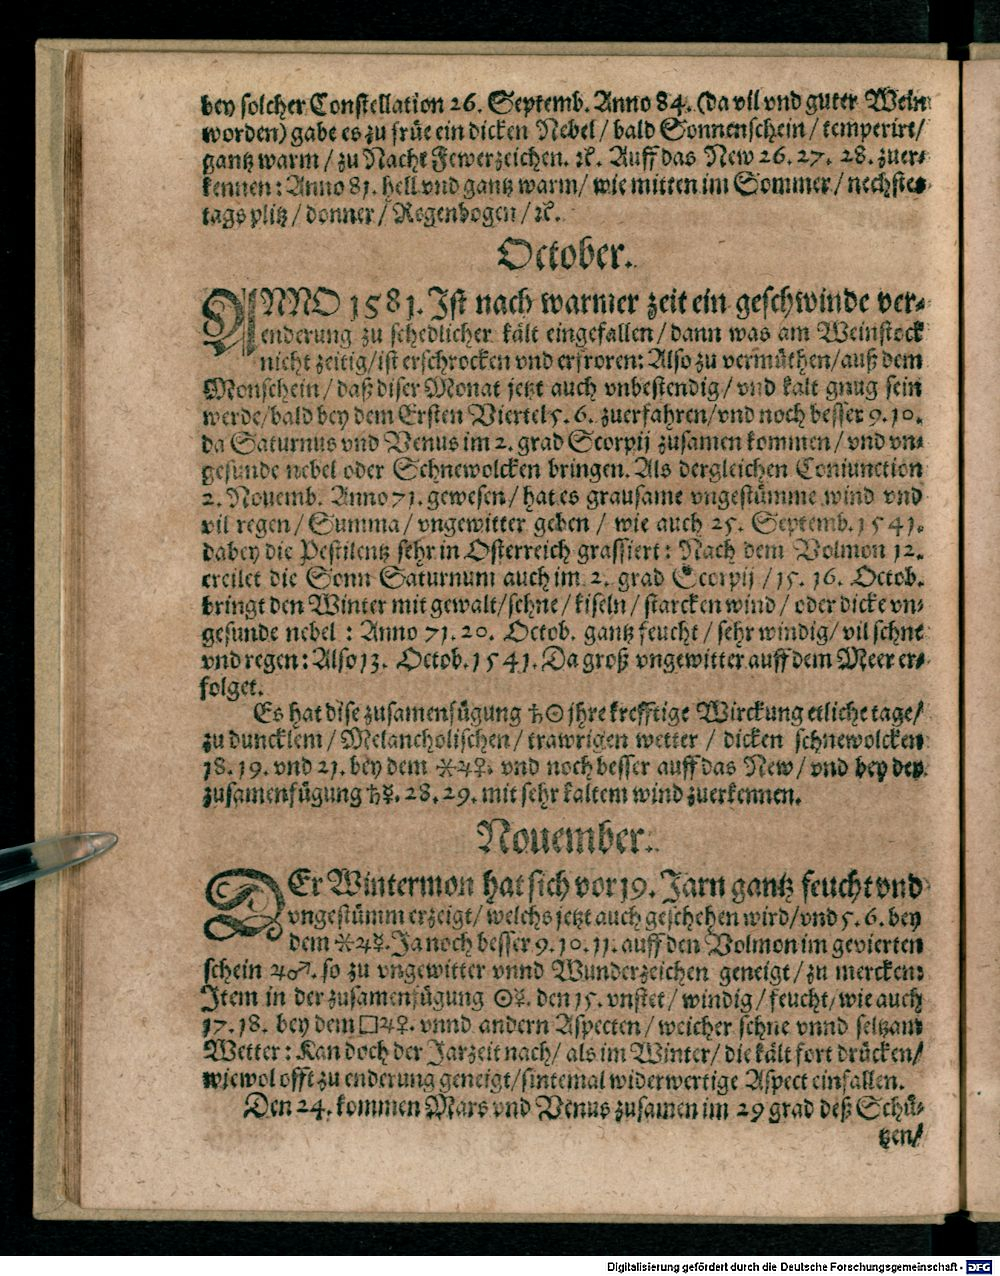 bey solcher Constellation 26. Septemb. Anno 84. (da vil vnd guter Wein
worden) gabe es zu früe ein dicken Nebel / bald Sonnenschein / temperirt/
gantz warm / zu Nacht Fewerzeichen. ꝛc. Auff das New 26. 27. 28. zuer⸗
kennen: Anno 81. hell vnd gantz warm/ wie mitten im Sommer / nechstes
tags plitz / donner / Regenbogen / ꝛc.
October.
ANNO 1581. Ist nach warmer zeit ein geschwinde ver⸗
enderung zu schedlicher kält eingefallen / dann was am Weinstock
nicht zeitig/ist erschrocken vnd erfroren: Also zu vermüthen/auß dem
Monschein / daß diser Monat jetzt auch vnbestendig / vnd kalt gnug sein
werde/bald bey dem Ersten Viertel 5. 6. zuerfahren/vnd noch besser 9. 10.
da Saturnus vnd Venus im 2. grad Scorpij zusamen kommen / vnd vn⸗
gesunde nebel oder Schnewolcken bringen. Als dergleichen Coniunction
2. Nouemb. Anno 71. gewesen / hat es grausame vngestümme wind vnd
vil regen / Summa / vngewitter geben / wie auch 25. Septemb. 1541.
dabey die Pestilentz sehr in Osterreich grassiert: Nach dem Volmon 12.
ereilet die Sonn Saturnum auch im 2. grad Scorpij / 15. 16. Octob.
bringt den Winter mit gewalt/schne / kiseln / starcken wind / oder dicke vn⸗
gesunde nebel : Anno 71. 20. Octob. gantz feucht / sehr windig/ vil schne
vnd regen: Also 13. Octob. 1541. Da groß vngewitter auff dem Meer er⸗
folget.
Es hat dise zusamenfügung ♄☉ jhre krefftige Wirckung etliche tage/
zu duncklem / Melancholischen / trawrigen wetter / dicken schnewolcken
18. 19. vnd 21. bey dem ⚹♃♀. vnd noch besser auff das New / vnd bey der
zusamenfügung ♄☿. 28. 29. mit sehr kaltem wind zuerkennen.
Nouember.
DEr Wintermon hat sich vor 19. Jarn gantz feucht vnd
vngestümm erzeigt/ welchs jetzt auch geschehen wird/vnd 5. 6. bey
dem ⚹♃☿. Ja noch besser 9. 10. 11. auff den Volmon im gevierten
schein ♃♂. so zu vngewitter vnnd Wunderzeichen geneigt / zu mercken:
Item in der zusamenfügung ☉☿. den 15. vnstet / windig / feucht, wie auch
17. 18. bey dem □♃♀. vnnd andern Aspecten / weicher schne vnnd seltzam
Wetter : Kan doch der Jarzeit nach/ als im Winter / die kält fort drücken/
wiewol offt zu enderung geneigt/sintemal widerwertige Aspect einfallen.
Den 24. kommen Mars vnd Venus zusamen im 29 grad deß Schü⸗
tzen/
Digitalisierung gefördert durch die Deutsche Forschungsgemeinschaft - DFG